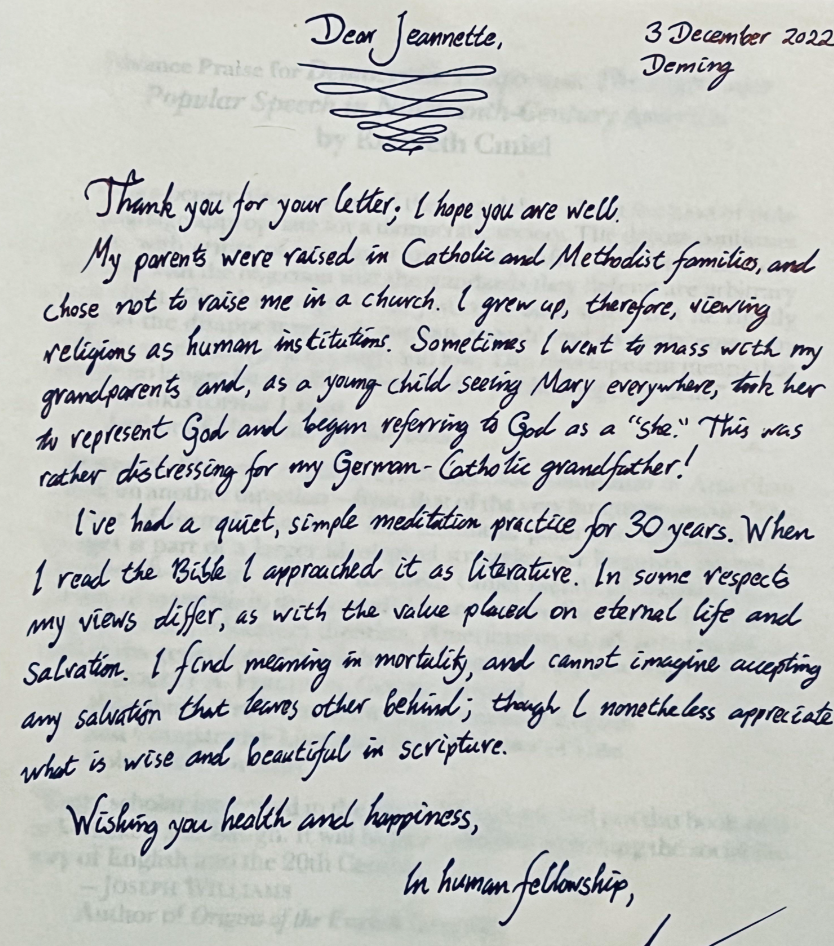 Dear Jeannette,
3 December 2022
Deming
Thank you for your letter; I hope you are well.
My parents were raised in Catholic and Methodist families, and
chose not to raise me in a church. I grew up, therefore, viewing
religions as human institutions. Sometimes I went to mass with my
grandparents and, as a young child seeing Mary everywhere, took her
to represent God and began referring to God as a "she." This was
rather distressing for my German-Catholic grandfather!
I've had a quiet, simple meditation practice for 30 years. When
I read the Bible I approached it as literature. In some respects
my views differ, as with the value placed on eternal life and
salvation. I find meaning in mortality, and cannot imagine accepting
any salvation that leaves other behind; though I nonetheless appreciate
what is wise and beautiful in scripture.
Wishing you health and happiness,
In human fellowship,
Popular Speech in
by Kenneth Cmiel
of English into the 20th
– JOSEPH WILLIAMS
Author of Origins of the English